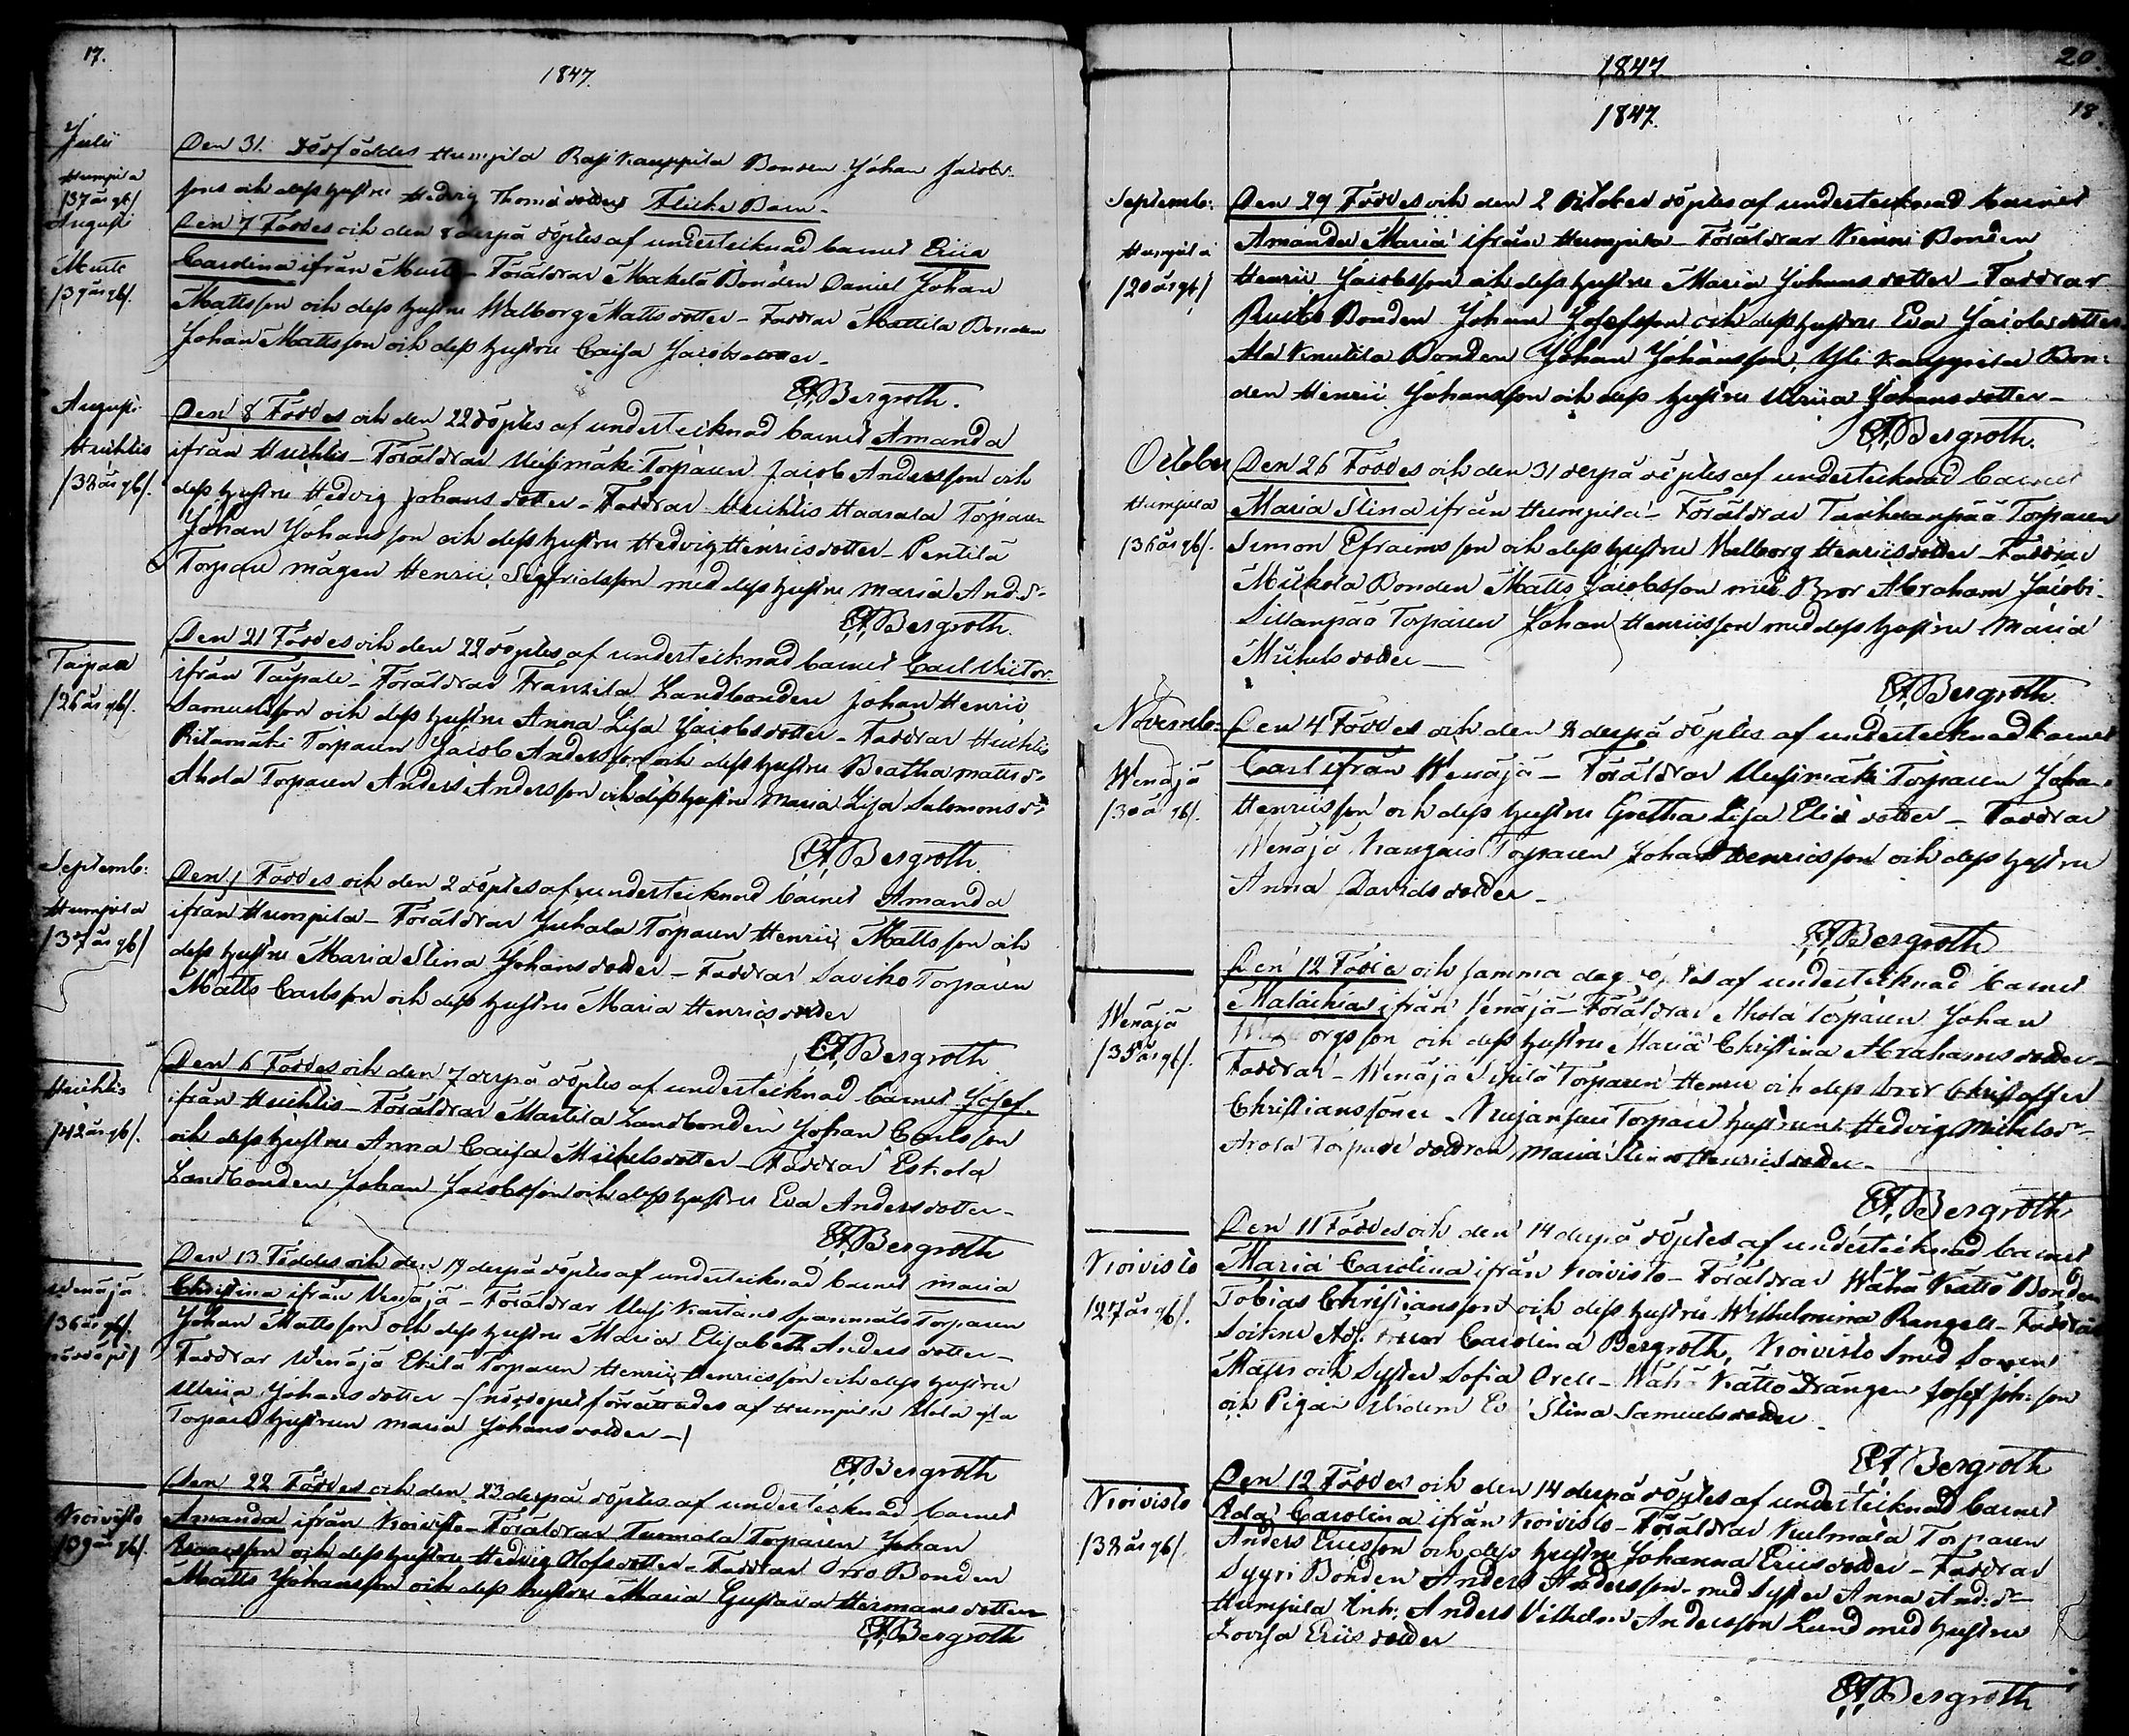 17.
1847.
Julii
Humpila
/37 år gl/
Den 31. Dödföddes Humpila Rasi Kauppila Bonden Johan Jacobs-
sons och dess hustru Hedvig Thomædotters Flicke Barn-
Augusti
Murto
/39 år gl/.
Den 7 Föddes och den 8 derpå döptes af undertecknad barnet Erica
Carolina ifrån Murto- Föräldrar Mäkelä Bonden Daniel Johan
Mattsson och dess hustru Walborg Mattsdotter- Faddrar Mattila Bonden
Johan Mattsson och dess hustru Caisa Jacobsdotter-
Bergroth.
Augusti
Huhtis
/32 år gl/.
Den 8 Föddes och den 22 döptes af undertecknad barnet Amanda
ifrån Huhtis- Föräldrar Uusimäki Torparen Jacob Andersson och
dess hustru Hedvig Johansdotter- Faddrar Huhtis Haarala Torparen
Johan Johansson och dess hustru Hedvig Henricsdotter- Pentilä
Torpare mågen Henric Sigfridsson med dess hustru Maria And:dr
Bergroth.
/26 år gl/.
Den 21 Föddes och den 22 döptes af undertecknad barnet Carl Victor
ifrån Taipale- Föräldrar Franzila Landbonden Johan Henric
Samuelsson och dess hustru Anna Lisa Jacobsdotter- Faddrar Huhtis
Ritamäki Torparen Jacob Andersson och dess hustru Beatha Mattsdr
Ahola Torparen Anders Andersson och dess hustru Maria Lisa Salomonsdr
Bergroth.
Septemb:
Humpila
/37 år gl/
Den 1 Föddes och den 2 döptes af undertecknad barnet Amanda
ifrån Humpila- Föräldrar Juhala Torparen Henric Mattsson och
dess hustru Maria Stina Johansdotter- Faddrar Saviko Torparen
Matts Carlsson och dess hustru Maria Henricsdotter
Bergroth.
Huhtis
/42 år gl/.
Den 6 Föddes och den 7 derpå döptes af undertecknad barnet Josef.
ifrån Huhtis- Föräldrar Martila Landbonden Johan Carlsson
och dess hustru Anna Caisa Michelsdotter- Faddrar Eskola
Landbonden Johan Jacobsson och dess hustru Eva Andersdotter-
Bergroth
Wenäjä
/36 år gl/.
nöddöpt/
Den 13 Föddes och den 19 derpå döptes af undertecknad barnet Maria
Christina ifrån Venäjä- Föräldrar Uusi Kartano Torparen
Johan Mattsson och dess hustru Maria Elisabeth Andersdotter-
Faddrar Wenäjä Torparen Henric Henricsson och dess hustru
Ulrica Johansdotter- (nöddopet förrättades af Humpila
Torpare hustrun Maria Johansdotter-)
Bergroth
Koivisto
/39 år gl/.
Den 22 Föddes och den 23 derpå döptes af undertecknad barnet
Amanda ifrån Koivisto- Föräldrar Tuomola Torparen Johan
Isaacsson och dess hustru Hedvig Olofsdotter- Faddrar Orro Bonden
Matts Johansson och dess hustru Maria Gustava Hermansdotter
Bergroth
20.
1847
18.
1847.
Septemb:
Humpila
/20 år gl/
Den 29 Föddes och den 2 October döptes af undertecknad barnet
Amanda Maria ifrån Humpila- Föräldrar Bonden
Henric Jacobsson och dess hustru Maria Johansdotter- Faddrar
Bonden Johan Josefsson och dess hustru Eva Jacobsdotter
Ala Knutila Bonden Johan Johansson, Yli Kauppila Bon-
den Henric Johansson och dess hustru Ulrica Johansdotter-
Bergroth.
October
Humpila
/36 år gl/.
Den 26 Föddes och den 31 derpå döptes af undertecknad barnet
Maria Stina ifrån Humpila- Föräldrar Torparen
Simon Efraimsson och dess hustru Walborg Henricsdotter- Faddrar
Mickola Bonden Matts Jacobsson med Bror Abraham Jacobs.
Sillanpää Torparen Johan Henricsson med dess hustru Maria
Michelsdotter-
Bergroth.
Novemb-
Wenäjä
/30 år gl/.
Den 4 Föddes och den 8 derpå döptes af undertecknad barnet
Carl ifrån Wenäjä- Föräldrar Uusimäki Torparen Johan
Henricsson och dess hustru Gretha Lisa Eliædotter- Faddrar
Wenäjä Torparen Johan Henricsson och dess hustru
Anna Davidsdotter-
Bergroth
Wenäjä
/35 år gl/.
Den 12 Föddes och samma dag döptes af undertecknad barnet
Malachias ifrån Venäjä- Föräldrar Ahola Torparen Johan
och dess hustru Maria Christina Abrahamsdotter-
Faddrar- Wenäjä Torparen Henric och dess bror Christoffer
Christianssöner- Torpare hustrun Hedvig Michelsdr-
Torpare dottren, Maria Stina Henricsdotter-
Bergroth
Koivisto
/27 år gl/.
Den 11 Föddes och den 14 derpå döptes af undertecknad barnet
Maria Carolina ifrån Koivisto- Föräldrar Wähä Kättö Bonden
Tobias Christiansson och dess hustru Wilhelmina Rangell- Faddrar
Carolina Bergroth, Koivisto Smed Sonen
Matts och Syster Sofia - Wähä Kättö Drängen Josef Joh:son
och Pigan Ibidem Stina Samuelsdotter-
Bergroth
Koivisto
/32 år gl/.
Den 12 Föddes och den 14 derpå döptes af undertecknad barnet
Ada Carolina ifrån Koivisto- Föräldrar Torparen
Anders Ericsson och dess hustru Johanna Ericsdotter- Faddrar
Syyri Bonden Anders Andersson- med Syster Anna And:dr-
Humpila Inh: Anders Vilhelm Andersson Lund med hustru
Lovisa Ericsdotter
Bergroth